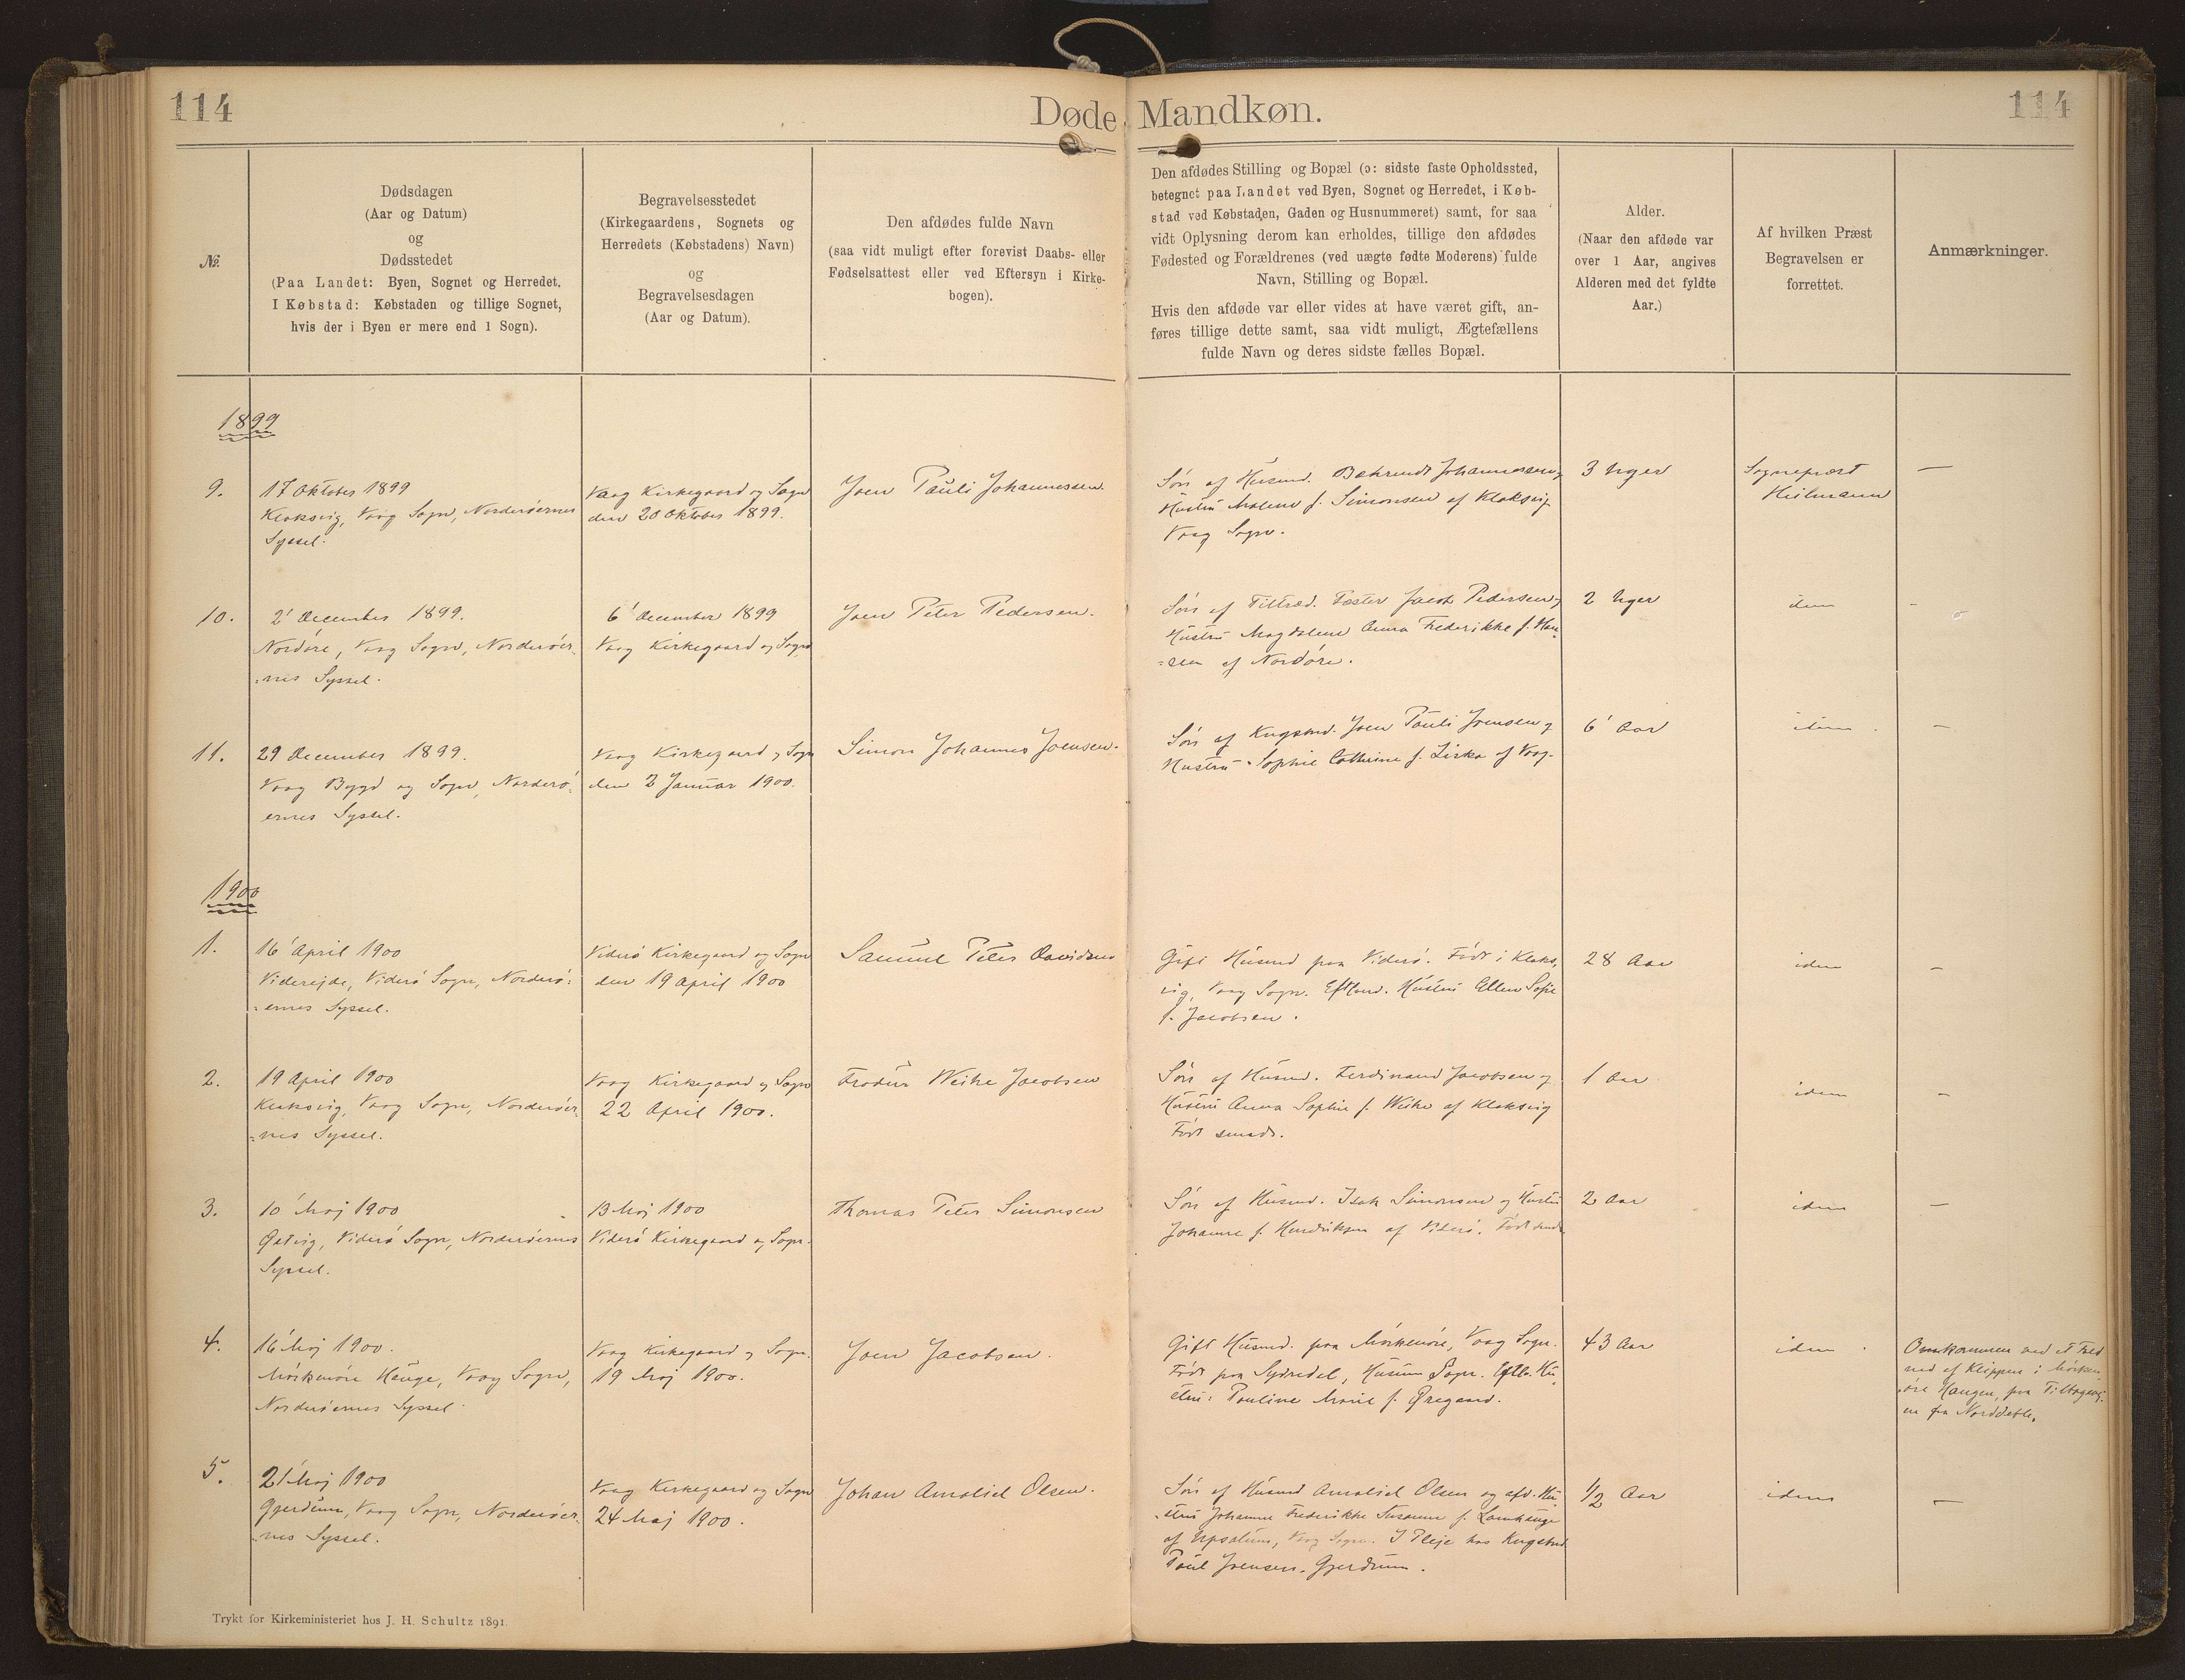 114
Døde Mandkøn.
114
№
Dødsdagen
(Aar og Datum)
og
Dødsstedet
(Paa Landet: Byen, Sognet og Herredet.
I Købstad: Købstaden og tillige Sognet,
hvis der i Byen er mere end 1 Sogn).
Begravelsesstedet
(Kirkegaardens, Sognets og
Herredets (Købstadens) Navn)
og
Begravelsesdagen
(Aar og Datum).
Den afdødes fulde Navn
(saa vidt muligt efter forevist Daabs- eller
Fødselsattest eller ved Eftersyn i Kirke-
bogen).
Den afdødes Stilling og Bopæl (ɔ: sidste faste Opholdssted,
betegnet paa Landet ved Byen, Sognet og Herredet, i Køb-
stad ved Købstaden, Gaden og Husnummeret) samt, for saa
vidt Oplysning derom kan erholdes, tillige den afdødes
Fødested og Forældrenes (ved uægte fødte Moderens) fulde
Navn, Stilling og Bopæl.
Hvis den afdøde var eller vides at have været gift, an-
føres tillige dette samt, saa vidt muligt, Ægtefællens
fulde Navn og deres sidste fælles Bopæl.
Alder.
(Naar den afdøde var
over 1 Aar, angives
Alderen med det fyldte
Aar.)
Af hvilken Præst
Begravelsen er
forrettet.
Anmærkninger.
1899
9.
17 Oktober 1899
Klaksvig, Vaag Sogn, Norderøernes
Syssel.
Vaag Kirkegaard og Sogn
den 20 Oktober 1899.
Joen Pauli Johannessen
Søn af Husmd. Behrendt Johannessen og
Hustru Malene f. Simonsen af Klaksvig
Vaag Sogn.
3 Uger
Sognepræst
Heilmann
—
10.
2' December 1899.
Nordøre, Vaag Sogn, Norderøer-
=nes Syssel.
6' December 1899
Vaag Kirkegaard og Sogn
Joen Peter Pedersen.
Søn af Tiltræd. Fæster Jacob Pedersen og
Hustru Magdalene Anna Frederikke f. Han-
=sen af Nordøre.
2 Uger
idem
-
11.
29 December 1899.
Vaag Bygd og Sogn, Norderø-
ernes Syssel.
Vaag Kirkegaard og Sogn
den 2 Januar 1900.
Simon Johannes Joensen.
Søn af Kngsbd. Joen Pauli Joensen og
Hustru Sophie Cathrine f. Lisha af Vaag.
6' Aar
idem.
—
1900
1.
16' April 1900
Viderejde, Viderø Sogn, Norderø-
=ernes Syssel.
Viderø Kirkegaard og Sogn
den 19 April 1900
Samuel Peter Davidsen
Gift Husmd paa Viderø. Født i Klaks-
vig, Vaag Sogn. Efterl. Hustru Ellen Sofie
f. Jacobsen.
28 Aar
idem
—
2.
19 April 1900
Klaksvig, Vaag Sogn, Norderøer-
=nes Syssel.
Vaag Kirkegaard og Sogn
22 April 1900.
Weihe Jacobsen
Søn af Husmd. Ferdinand Jacobsen og
Hustru Anna Sophie f. Weihe af Klaksvig
Født smsds.
1 Aar
idem
—
3.
10' Maj 1900
Viderø Sogn, Norderøernes
Syssel.
13 Maj 1900
Viderø Kirkegaard og Sogn.
Thomas Peter Simonsen
Søn af Husmd. Isak Simonsen og Hustru
Johanne f. Hendriksen af Viderø. Født
2 Aar
idem
—
4.
16' Maj 1900.
Mørkenøre Hauge, Vaag Sogn,
Norderøernes Syssel.
Vaag Kirkegaard og Sogn.
19 Maj 1900.
Joen Jacobsen.
Gift Husmd. paa Mørkenøre, Vaag Sogn.
Født paa Sydredal, Husum Sogn. Eftl. Hu-
stru: Pauline Marie f. Øregaard.
43 Aar
idem.
Omkommen ved et Fald
ned af Klippen i Mørken-
øre Haugen, paa Tilbagevej-
en fra Norddeble.
5.
21' Maj 1900
Gjerdum, Vaag Sogn, Norderøer-
nes Syssel.
Vaag Kirkegaard og Sogn
24 Maj 1900.
Johan Amaliel Olsen.
Søn af Husmd Amaliel Olsen og afd. Hu-
stru Johanne Frederikke Susanne f. Lamhauge
af Upsalum, Vaag Sogn. I Pleje hos Kngsbd.
Poul Joensen, Gjerdum.
1/2 Aar
idem
—
Trykt for Kirkeministeriet hos J. H. Schultz 1891.